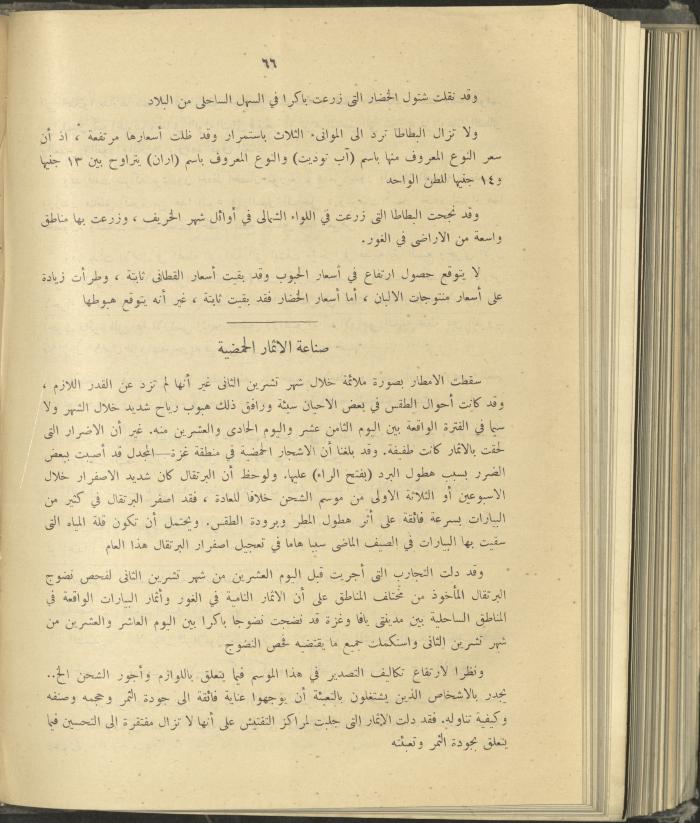 ٦٦
وقد نقلت شتول الخضار التى زرعت باكرا في السهل الساحلى من البلاد
ولا تزال البطاطا ترد الى الموانىء الثلاث باستمرار وقد ظلت أسعارها مرتفعة ، اذ أن
سعر النوع المعروف منها باسم (آب توديت) والنوع المعروف باسم (اران) يتراوح بين ١٣ جنيها
و١٤ جنيها للطن الواحد
وقد نجحت البطاطا التى زرعت في اللواء الشمالى في أوائل شهر الخريف ، وزرعت بها مناطق
واسعة من الاراضى في الغور.
لا يتوقع حصول ارتفاع في أسعار الحبوب وقد بقيت أسعار القطانى ثابتة ، وطرأت زيادة
على أسعار منتوجات الالبان ، أما أسعار الخضار فقد بقيت ثابتة ، غير أنه يتوقع هبوطها
صناعة الاثمار الحمضية
سقطت الامطار بصورة ملائمة خلال شهر تشرين الثانى غير أنها لم تزد عن القدر اللازم ،
وقد كانت أحوال الطقس في بعض الاحيان سيئة ورافق ذلك هبوب رياح شديد خلال الشهر ولا
سيما في الفترة الواقعة بين اليوم الثامن عشر واليوم الحادى والعشرين منه. غير أن الاضرار التى
لحقت بالاثمار كانت طفيفة. وقد بلغنا أن الاشجار الحمضية في منطقة غزة—المجدل قد أصيبت ببعض
الضرر بسبب هطول البرد (بفتح الراء) عليها. ولوحظ أن البرتقال كان شديد الاصفرار خلال
الاسبوعين أو الثلاثة الاولى من موسم الشحن خلافا للعادة ، فقد اصفر البرتقال في كثير من
البيارات بسرعة فائقة على أثر هطول المطر وبرودة الطقس. ويحتمل أن تكون قلة المياه التى
سقيت بها البيارات في الصيف الماضى سببا هاما في تعجيل اصفرار البرتقال هذا العام
وقد دلت التجارب التى أجريت قبل اليوم العشرين من شهر تشرين الثانى لفحص نضوج
البرتقال المأخوذ من مختلف المناطق على أن الاثمار النامية في الغور وأثمار البيارات الواقعة في
المناطق الساحلية بين مدينتى يافا وغزة قد نضجت نضوجا باكرا بين اليوم العاشر والعشرين من
شهر تشرين الثانى واستكملت جميع ما يقتضيه فحص النضوج
ونظرا لارتفاع تكاليف التصدير في هذا الموسم فيما يتعلق باللوازم وأجور الشحن الخ..
يجدر بالاشخاص الذين يشتغلون بالتعبئة أن يوجهوا عناية فائقة الى جودة الثمر وحجمه وصنفه
وكيفية تناوله. فقد دلت الاثمار التى جلبت لمراكز التفتيش على أنها لا تزال مفتقرة الى التحسين فيما
يتعلق بجودة الثمر وتعبئته